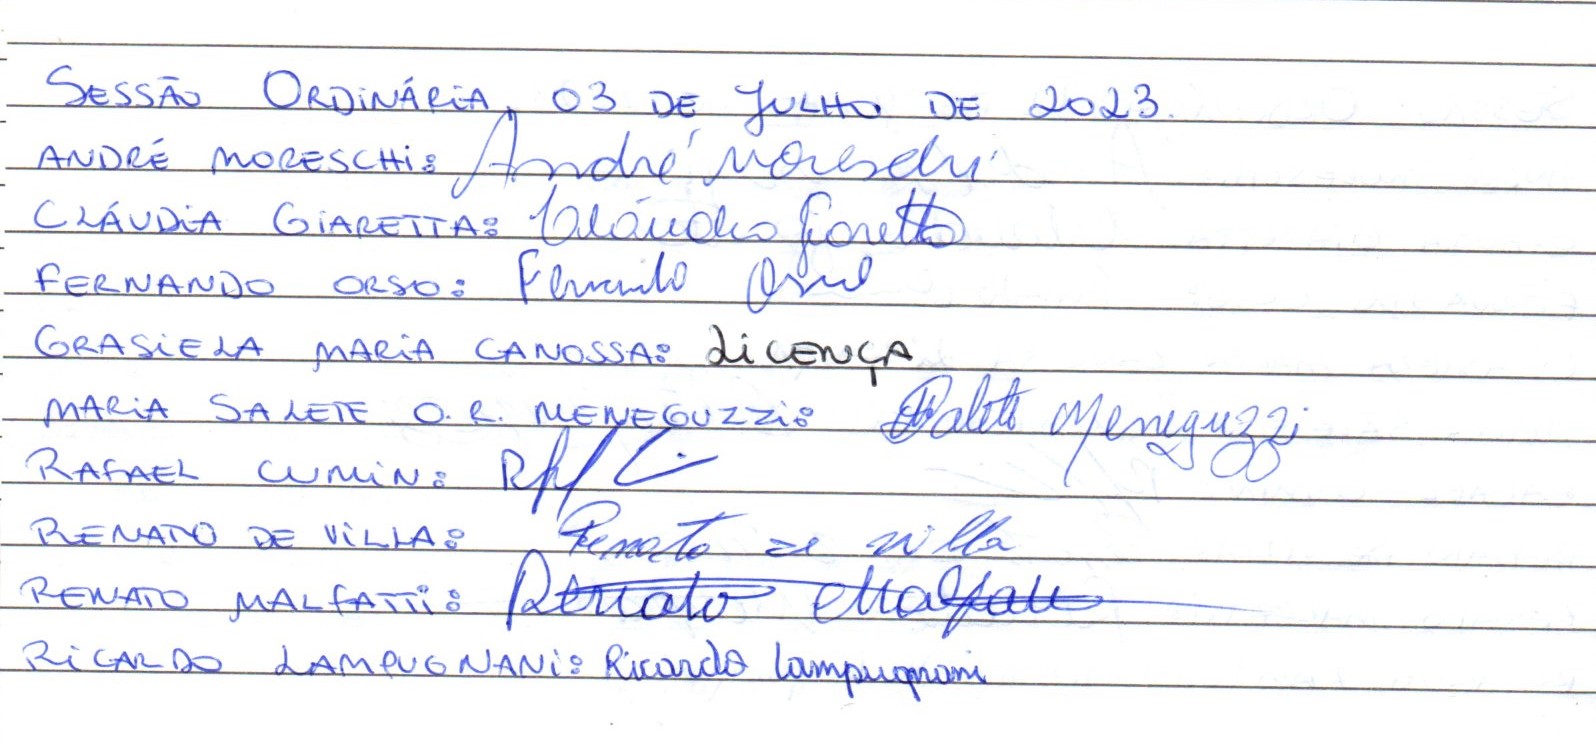 SESSÃO ORDINÁRIA, 03 DE JULHO DE 2023.
ANDRÉ MORESCHI: André Moreschi
CLÁUDIA GIARETTA: Cláudia Giaretta
FERNANDO ORSO: Fernando Orso
GRASIELA MARIA CANOSSA: LICENÇA
MARIA SALETE O. R. MENEGUZZI: Salete Meneguzzi
RAFAEL CUMIN:
RENATO DE VILLA: Renato de Villa
RENATO MALFATTI: Renato Malfatti
RICARDO LAMPUGNANI: Ricardo Lampugnani